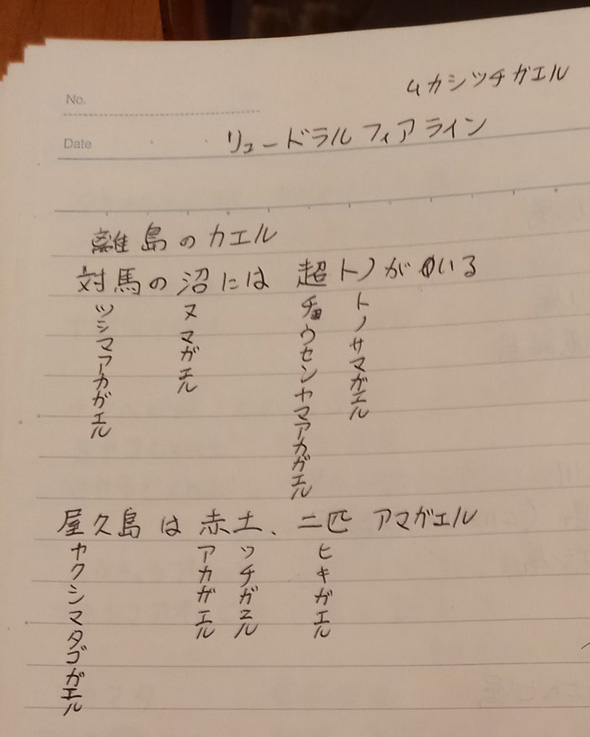 No.
ムカシツチガエル
Date
リュードラルフィアライン
離島のカエル
対馬の沼には 超トノがいる
ツシマアカガエル
ヌマガエル
チョウセンヤマアカガエル
トノサマガエル
屋久島は赤土、二匹 アマガエル
ヤクシマタゴガエル
アカガエル
ツチガエル
ヒキガエル